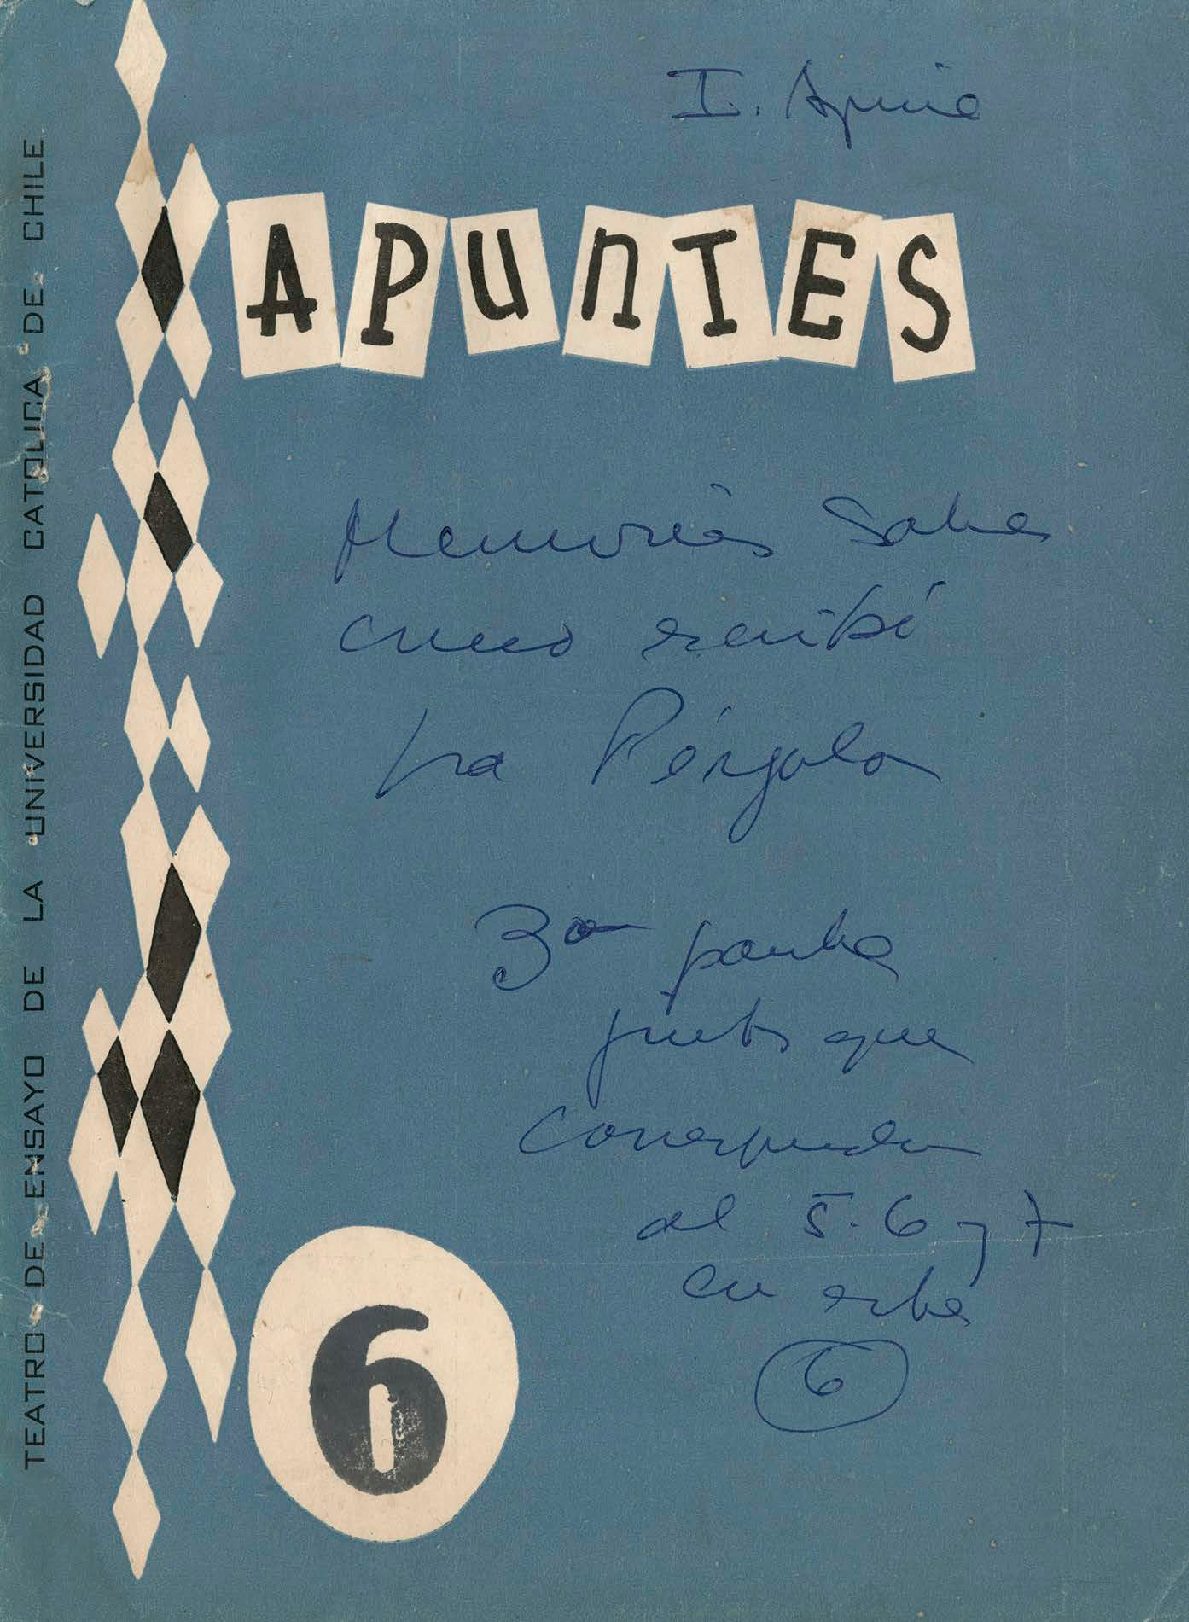 I. Aguirre
APUNTES
TEATRO DE ENSAYO DE LA UNIVERSIDAD CATOLICA DE CHILE
Memorias Sobre
como escribí
La Pérgola
3a parte
puesto que
corresponden
al 5. 6 y 7
en este
6
6